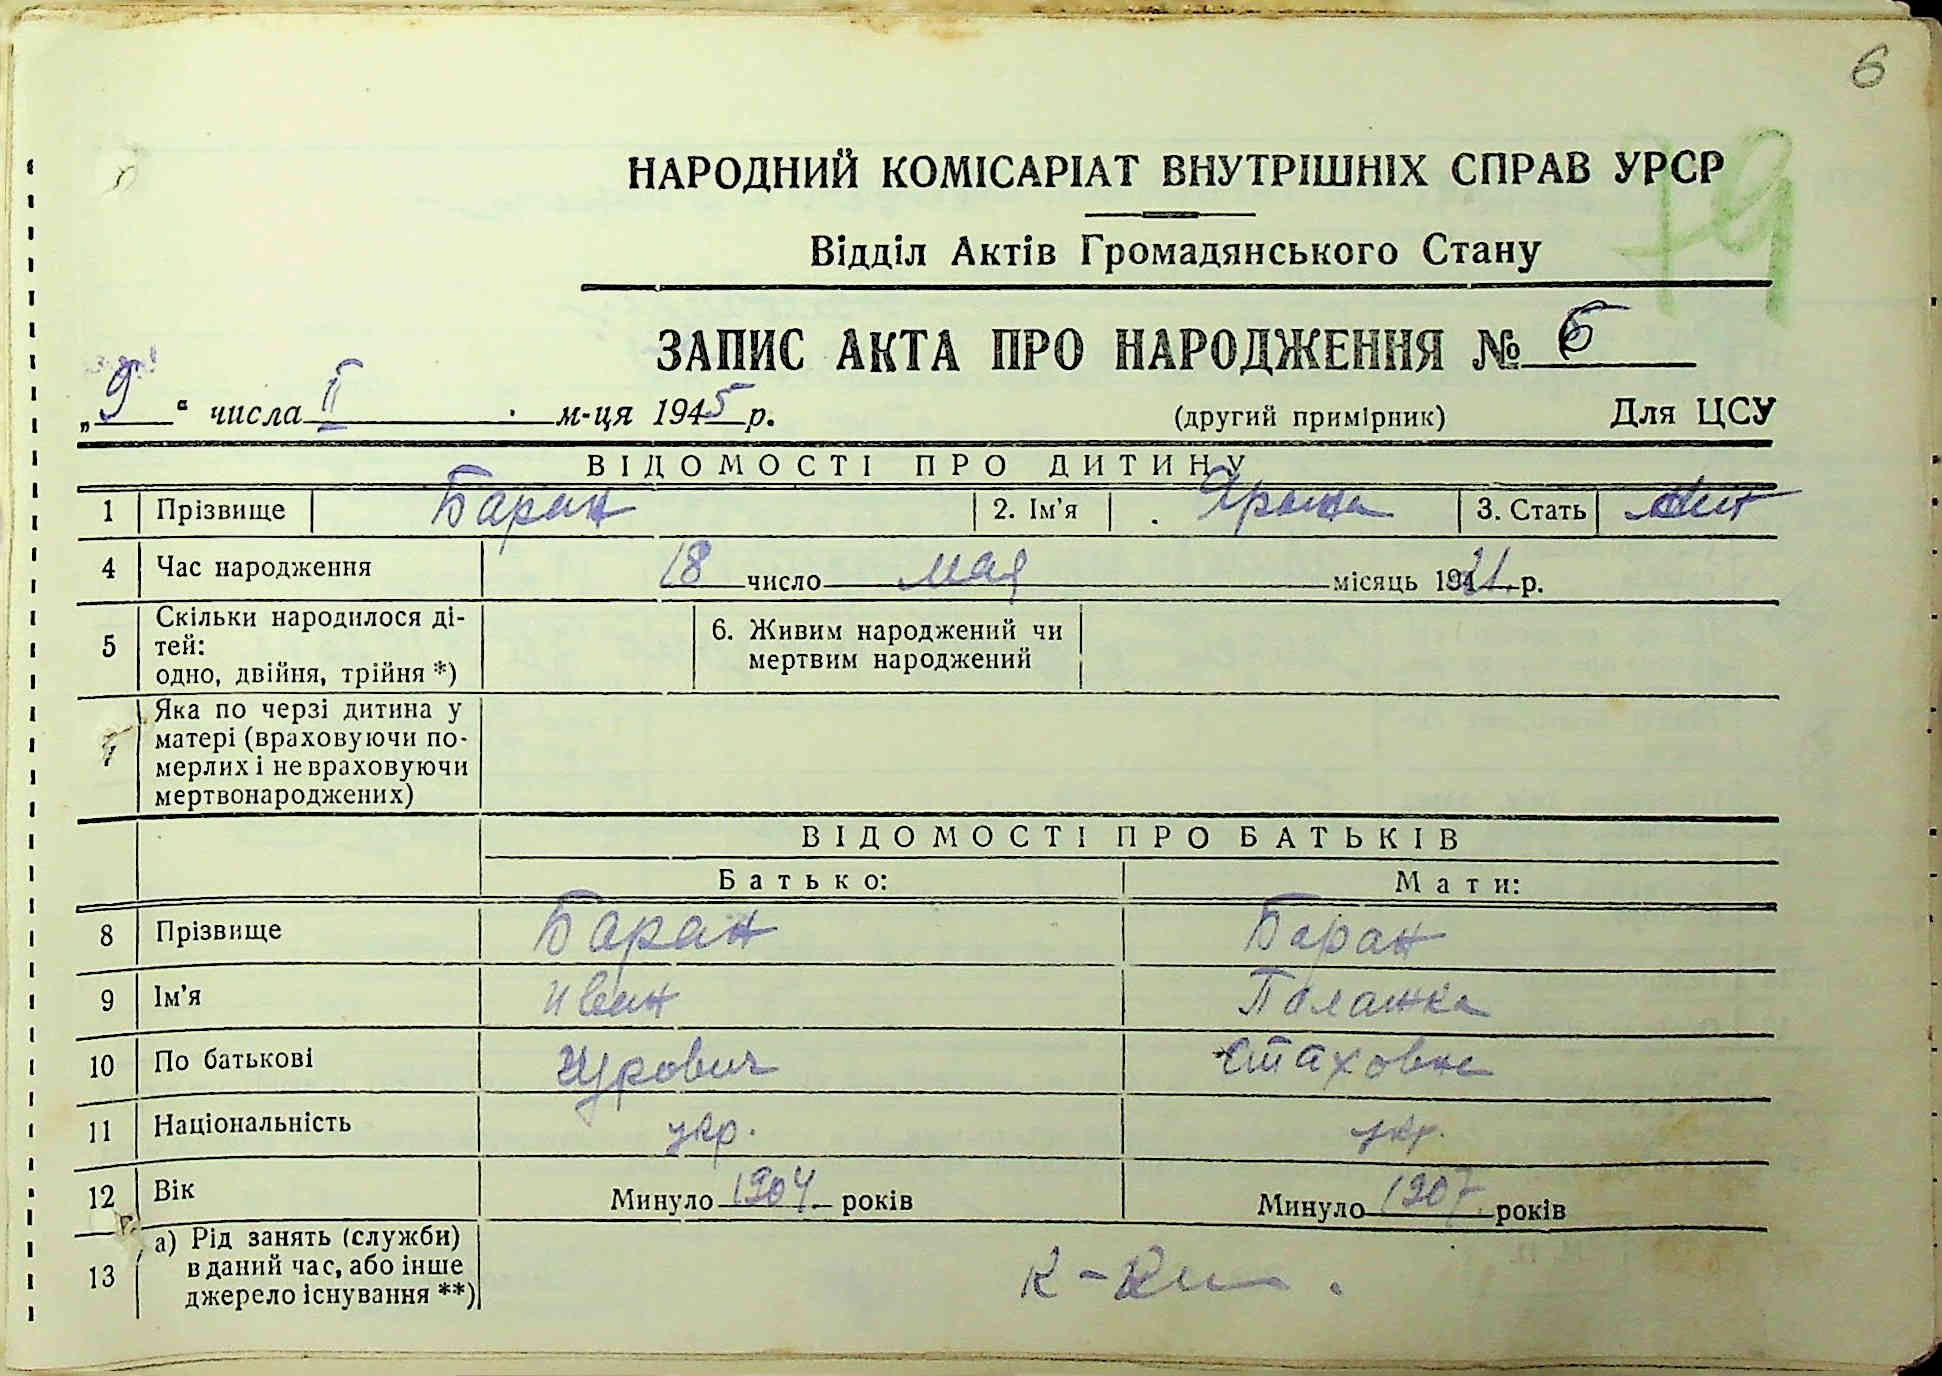 6
НАРОДНИЙ КОМІСАРІАТ ВНУТРІШНІХ СПРАВ УРСР
Відділ Актів Громадянського Стану
ЗАПИС АКТА ПРО НАРОДЖЕННЯ № 6
„9“ числа II м-ця 1945 р. (другий примірник) Для ЦСУ
ВІДОМОСТІ ПРО ДИТИНУ
1 Прізвище Баран 2. Ім'я 3. Стать
4 Час народження 18 число мая місяць р.
5 Скільки народилося ді-
тей:
одно, двійня, трійня *)
6. Живим народжений чи
мертвим народжений
7 Яка по черзі дитина у
матері (враховуючи по-
мерлих і не враховуючи
мертвонароджених)
ВІДОМОСТІ ПРО БАТЬКІВ
Батько: Мати:
8 Прізвище Баран Баран
9 Ім'я Иван Палажка
10 По батькові Стаховна
11 Національність укр. укр.
12 Вік Минуло 1904 років Минуло 1907 років
13 а) Рід занять (служби)
в даний час, або інше
джерело існування **)